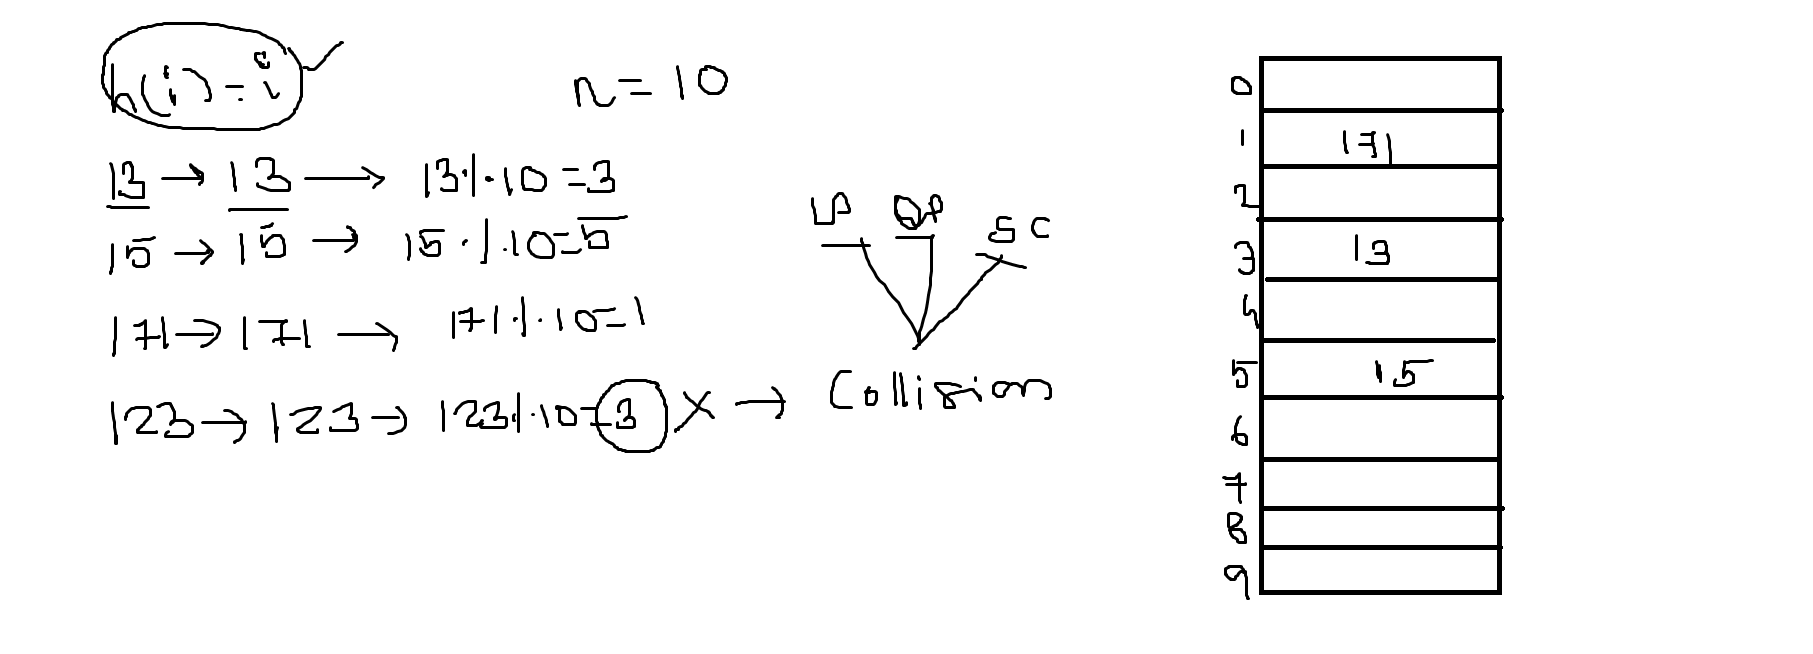 h(i) = i
n = 10
13 → 13 → 13 % 10 = 3
15 → 15 → 15 % 10 = 5
171 → 171 → 171 % 10 = 1
123 → 123 → 123 % 10 = 3 X → Collision
LP QP SC
0
1 171
2
3 13
4
5 15
6
7
8
9